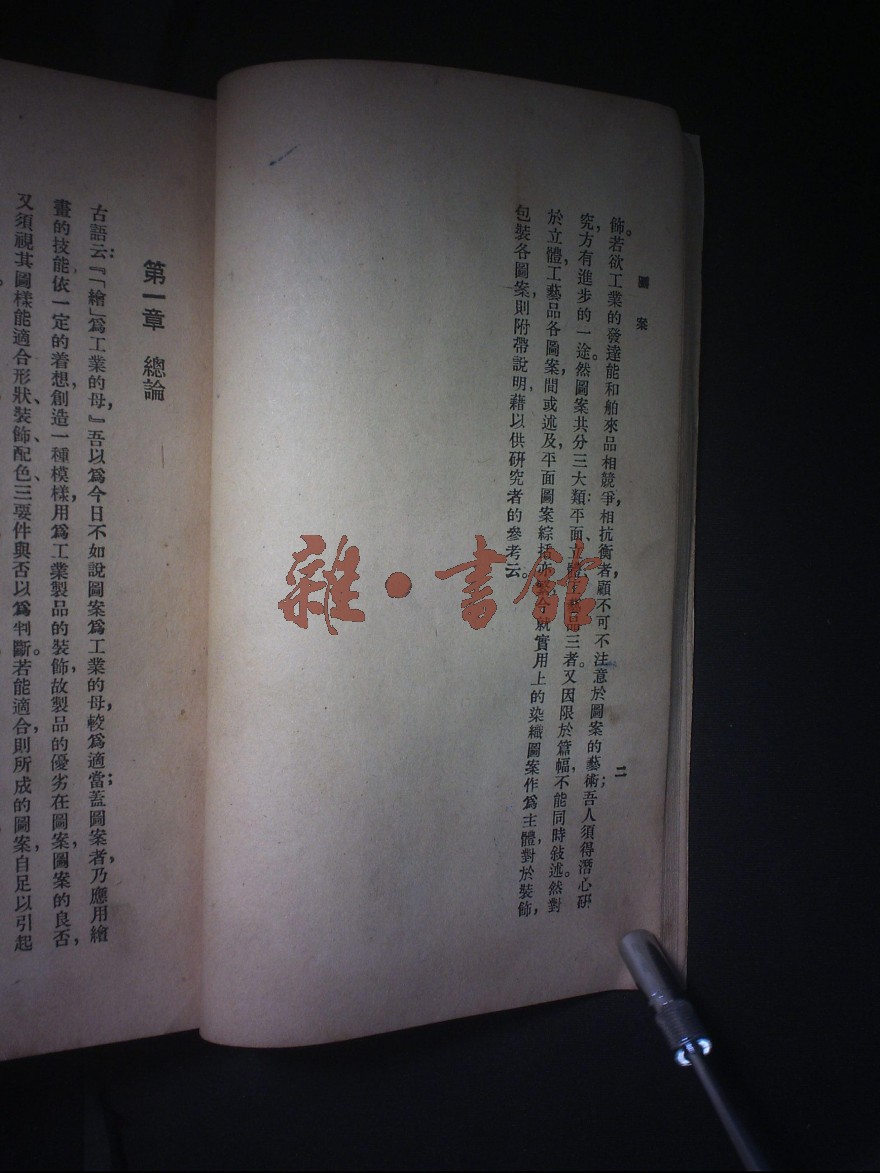 圖案
二
飾。若欲工業的發達能和舶來品相競爭,相抗衡者,顧不可不注意於圖案的藝術;吾人須得潛心研
究,方有進步的一途。然圖案共分三大類:平面、立體、工藝品三者。又因限於篇幅,不能同時敍述。然對
於立體,工藝品各圖案,間或述及,平面圖案綜括 就實用上的染織圖案作爲主體,對於裝飾,
包裝各圖案,則附帶說明,藉以供研究者的參考云。
第一章 總論
古語云:『「繪」爲工業的母,』吾以爲今日不如說圖案爲工業的母,較爲適當;蓋圖案者,乃應用繪
畫的技能,依一定的着想,創造一種模樣,用爲工業製品的裝飾,故製品的優劣在圖案,圖案的良否,
又須視其圖樣能適合形狀、裝飾、配色三要件與否以爲判斷。若能適合,則所成的圖案,自足以引起
雜·書館